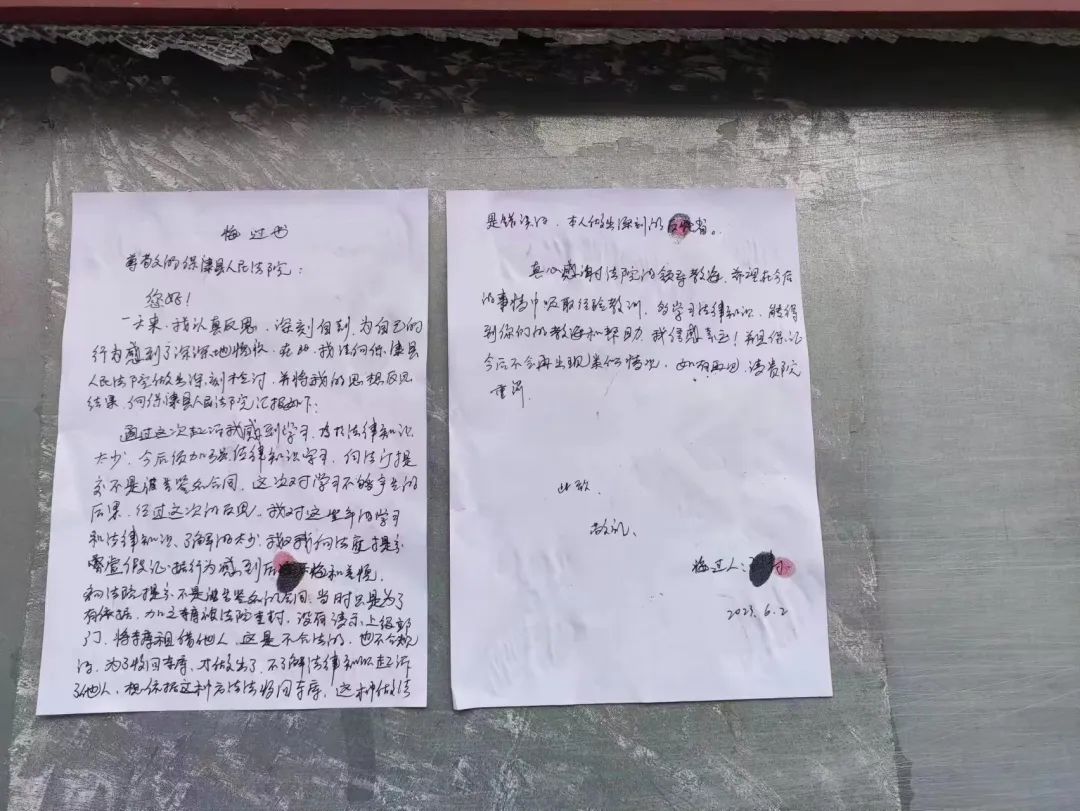 悔过书
尊敬的保康县人民法院:
您好!
一天来,我认真反思,深刻自刻,为自己的
行为感到了深深地愧疚,在此,我法向保康县
人民法院做出深刻检讨,并将我的思想反思
结果,向保康县人民法院汇报如下:
通过这次起诉我感到学习,有于法律知识
太少,今后须加强法律知识学习,向法庭提
交不是被告签名合同,这次对学习不够产生的
后果,经过这次的反思,我对这些年的学习
和法律知识、了解的太少,我对我向法庭提交
虚假证据行为感到后悔和羞愧,
向法院提交不是被告签名的合同,当时只是为了
有依据,加之车库被法院查封,没有请示上级部
门,将车库租借他人,这是不合法的,也不合规
的,为了收回车库,才做出了,不了解法律知识起诉
了他人,想依据这种方法收回车库,这种做法
是错误的,本人做出深刻的反省。
真心感谢法院的领导教诲,希望在今后
的事情中吸取经验教训,多学习法律知识,能得
到你们的教诲和帮助,我倍感幸运!并且保证
今后不会再出现类似情况,如有再见,请贵院
重罚。
此致
敬礼、
悔过人:
2023.6.2